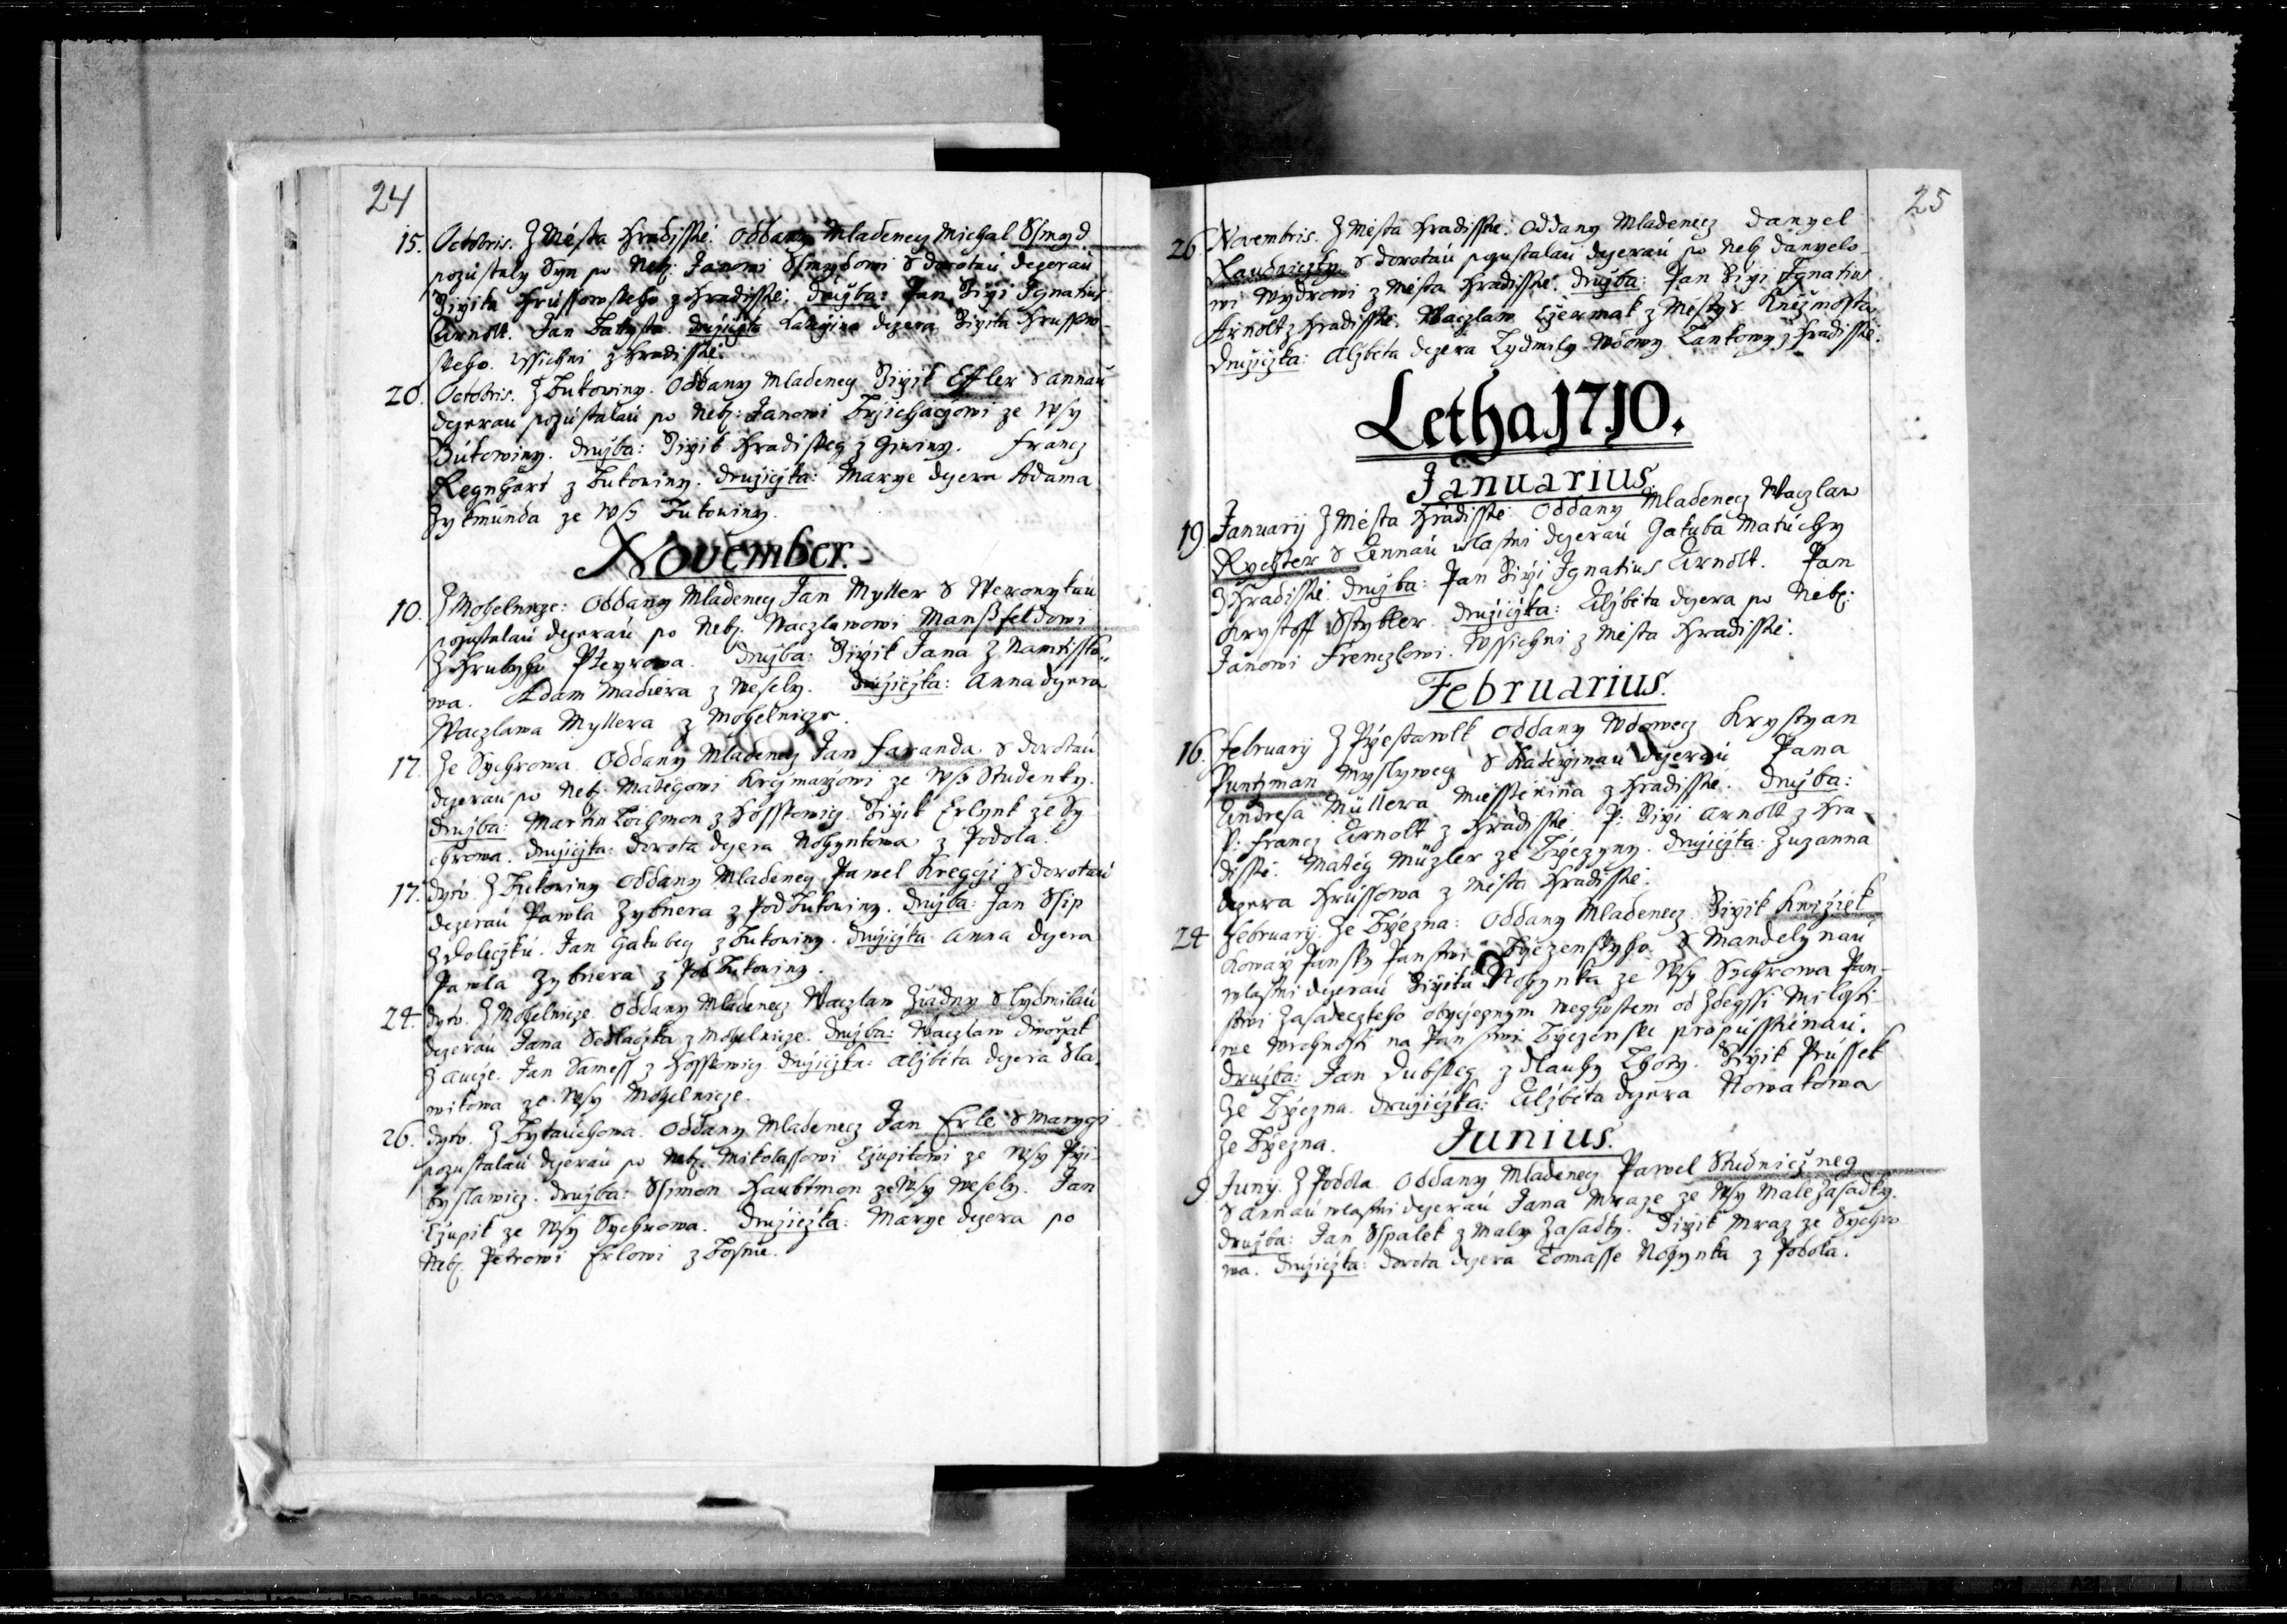 24
15. Octobris. Z Mésta Hradisstė. Oddany Mladenecz Michal Sſmyd
pozůstaly Syn po Neb: Janowi Sſmydowi s dorotaú dczeraú
Giřjka Hrússowskeho z Hradisstė. družba: Pan Giřj Ignatius
Arnolt. Jan Tatysta. družičzka Kateřina dczera Giřjka Hrussow-
skeho. wssichni z Hradisstė.
20. Octobris. Z Zukowiny. Oddany Mladenecz Giřjk Effler s Annaú
dczeraú pozůstalaú po Neb: Janowi ze Wsy
Búkowiny. družba: Giřjk Hradisskey z Giwiny. Francz
Regnhart z Zukowiny. družičzka: Marye dczera Adama
Zykmúnda ze Wsy Zukowiny.
November.
10. Z Mohelnicze: Oddany Mladenecz Jan Myller s Weronykaú
pozustalaú dczeraú po Neb. Waczlawowi Manßfeldowi
Z Hrubyho Pteyrowa. družba: Giřjk Jana z Namtissko-
wa. Adam Madiera z Wesely. družičzka: Anna dczera
Waczlawa Myllera z Mohelnicze.
17. Ze Sychrowa. Oddany Mladenecz Jan Faranda s dorotaú
dczeraú po Neb. Matėgowi Krčzmarzowi ze Wsy Studenky.
družba: Martin Lochmon z Hosskowicz. Giřjk Erlynk ze Sy-
chrowa. družičzka: dorota dczera Nohynkowa z Podola.
17. dyto. Z Zukowiny Oddany Mladenecz Pawel Kregczj s dorotaú
dczeraú Pawla Zybnera z Pod Zukowiny. družba: Jan Ssip
z dolečzkú. Jan Gakubecz z Zukowiny. družičzka: Anna dczera
Pawla Zybnera z Pod Zukowiny.
24. dyto. Z Mohelnicze. Oddany Mladenecz Waczlaw Žiadny s Lydmilaú
dczeraú Jana Sedlačzka z Mohelnicze. družba: Waczlaw dworžak
Z aucze. Jan Samess z Hosskowicz. družičzka: Alžbėta dczera Sla-
wikowa ze Wsy Mohelnicze.
26. dyto. Z Zytaúchowa. Oddany Mladenecz Jan Erle s Marygi
pozustalaú dczeraú po Neb: Mikolassowi Czupikowi ze Wsy Přj-
byslawicz. družba: Ssimon Haubtmon ze Wsy Wesely. Jan
Czupik ze Wsy Sychrowa. družičzka: Marye dczera po
Neb: Petrowi Erlowi z Losnie.
25
26 Novembris. Z Mėsta Hradisstė. Oddany Mladenecz Danyel
Raudniczky s dorotaú pozustalaú dczeraú po Neb danyelo-
wi Wydrowi z Mėsta Hradisstė. družba: Pan Giřj Ignatius
Arnolt z Hradisstė. Waczlaw Czermak z Mėsty s Knėžmosta,
družičzka: Alžbėta dczera Lydmily Wdowy Lankowy z Hradisstė.
Letha 1710.
Januarius.
19. Januarij Z Mėsta Hradisstė Oddany Mladenecz Waczlaw
Rychter s Annaú wlastni dczeraú Gakuba Matúchy
Z Hradisstė. družba: Pan Giřj Ignatius Arnolt. Pan
Krystoff Sstybler. družičzka: Alžbėta dczera po Neb:
Janowi Frenczlowi. Wssichni z Mėsta Hradisstė.
Februarius.
16. February Z Přestawlk Oddany Wdowecz Krystyan
Puntzman Myslywecz s Kateřinaú dczeraú Pana
Andresa Müllera Miesstėnina z Hradisstė. družba:
P: Francz Arnolt z Hradisstė P: Giřj Arnolt z Hra-
disstė. Matėg Müzler ze Lžyczyny. družičzka: Zuzanna
dczera Hrússowa z Mėsta Hradisstė.
24 February. Ze Zřyczna: Oddany Mladenecz Giřjk Knižiek
Kowař Panssky Panstwi s Mandelynaú
wlastni dczeraú Giřjka Nohynka ze Wsy Sychrowa Pan-
stwi Zasadeczkeho obyčzegnym weyhostem od Zdegssi Milosti-
we Wrchnosti na Panstwi propusstėnaú.
družba: Jan Dubskey z dlauhy Lhoty. Giřjk Prússek
Ze Zřyczna. družičzka: Alžbėta dczera Nowakowa
Ze Zřyczna.
Junius.
9 Juny. Z Podola. Oddany Mladenecz Pawel Studničzney
s Annaú wlastni dczeraú Jana Mraze ze Wsy Malé Zasadky.
družba: Jan Sspalek z Maly Zasadky. Giřjk Mraz ze Sychro-
wa. družičzka: dorota dczera Tomasse Nohynka z Podola.